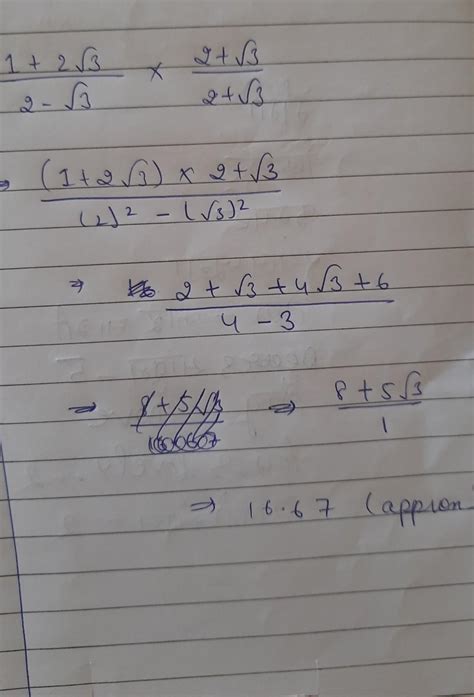 (1 + 2√3)/(2 - √3) × (2+√3)/(2+√3)
⇒ ((1+2√3) × 2+√3)/((2)² - (√3)²)
⇒ (2 + √3 + 4√3 + 6)/(4 - 3)
⇒ ⇒ (8 + 5√3)/1
⇒ 16.67 (approx